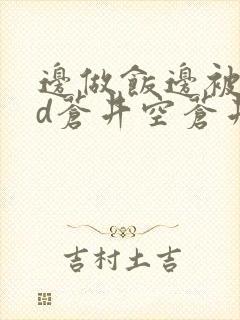 邊做飯邊被
d蒼井空蒼井
吉村土吉